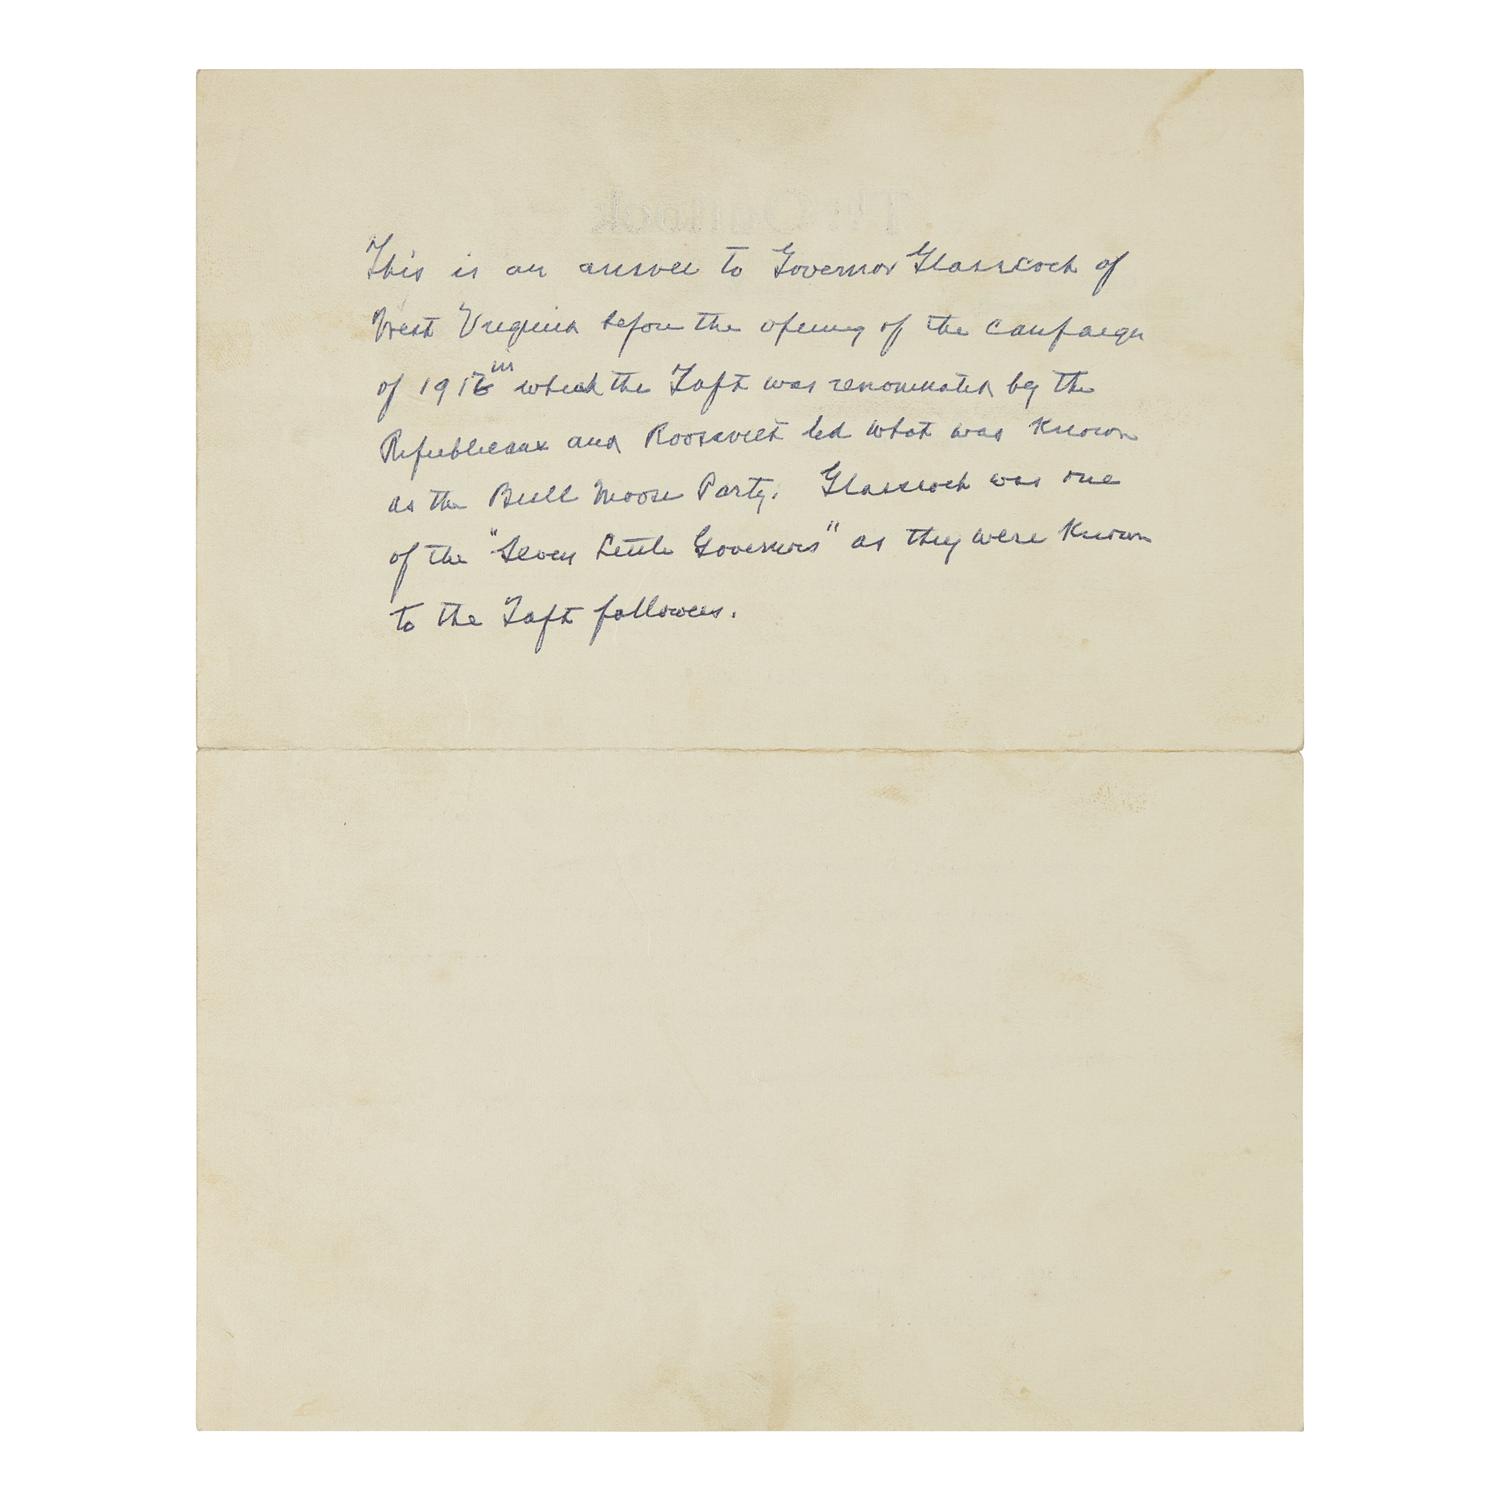 The Outlook
This is an answer to Governor Glasscock of
West Virginia before the opening of the campaign
of 1912 in which the Taft was renominated by the
Republicans and Roosevelt led what was known
as the Bull Moose Party. Glasscock was one
of the "Seven Little Governors" as they were known
to the Taft followers.